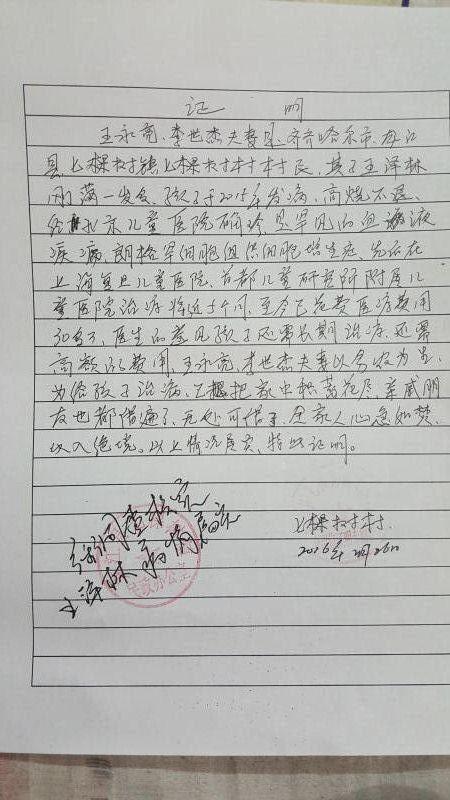 证 明
王永亮、李世杰夫妻是齐齐哈尔市龙江
县七棵树镇七棵树村村民,其子王泽林
刚满一岁多,孩子于2015年发病,高烧不退,
经北京儿童医院确诊,是罕见的血液
疾病,朗格罕细胞组织细胞增生症,先后在
上海复旦儿童医院、首都儿童研究所附属儿
童医院治疗将近个月,至今已花费医疗费用
30多万,医生的意见孩子还需长期治疗,还需
高额的费用,王永亮、李世杰夫妻以务农为生,
为给孩子治病,已把家中积蓄花尽,亲戚朋
友也都借遍了,无处可借了,全家人心急如焚,
陷入绝境。以上情况属实,特此证明。
七棵树村
2016年 月26日
经调查核实
王泽林病情属实
民政办公室